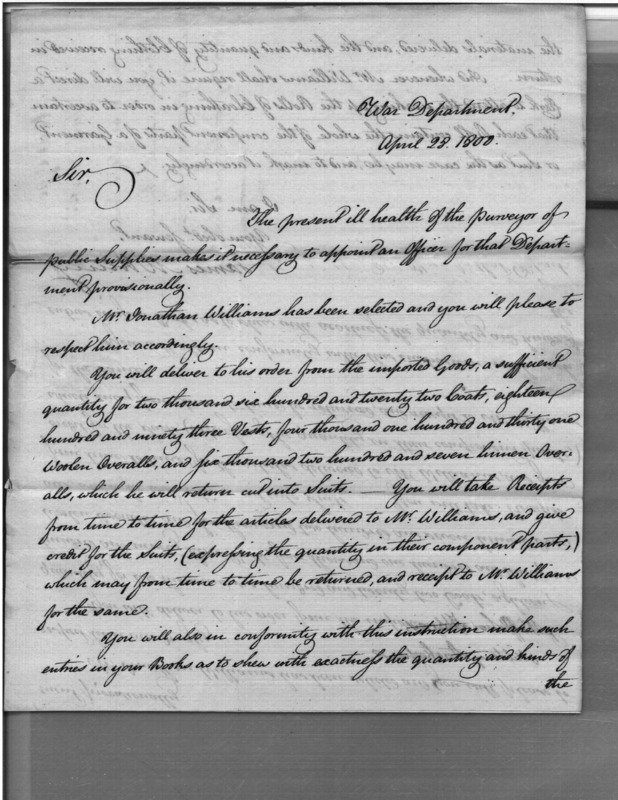 War Department,
April 23. 1800.
Sir,
The present ill health of the Purveyor of
public Supplies makes it necessary to appoint an Officer for that Depart-
ment provisionally.
Mr. Jonathan Williams has been selected and you will please to
respect him accordingly.
You will deliver to his order from the imported Goods, a sufficient
quantity for two thousand six hundred and twenty two Coats, eighteen
hundred and ninety three Vests, four thousand one hundred and thirty one
Woolen Overalls, and six thousand two hundred and seven linnen Over-
alls, which he will return cut into Suits. — You will take Receipts
from time to time for the articles delivered to Mr. Williams, and give
credit for the Suits, (expressing the quantity in their component parts,)
which may from time to time be returned, and receipt to Mr. Williams
for the same.
You will also in conformity with this instruction make such
entries in your Books as to shew with exactness the quantity and kinds of
the